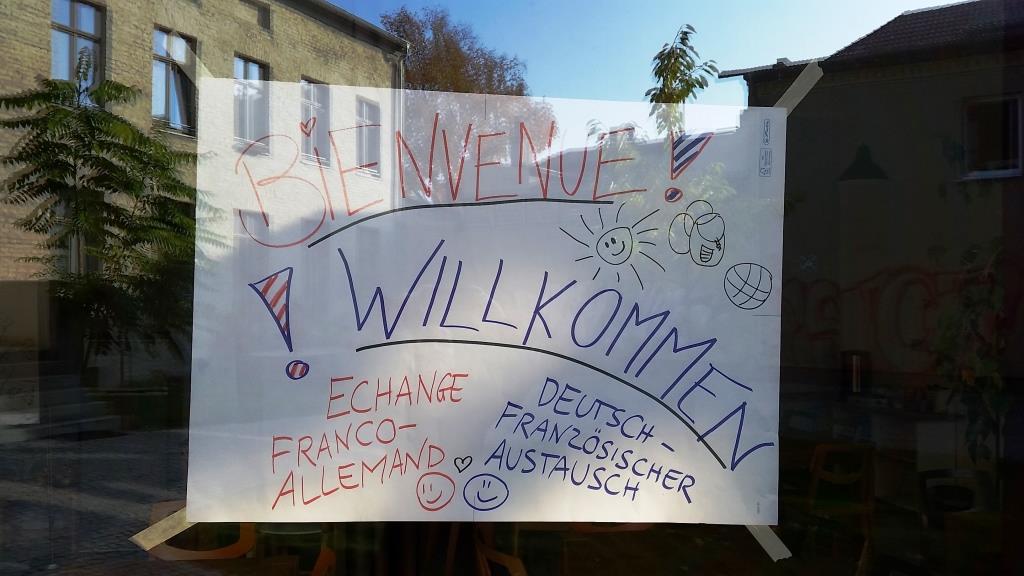 BiENVENUE!
! WILLKOMMEN
ECHANGE
FRANCO-
ALLEMAND
DEUTSCH-
FRANZÖSISCHER
AUSTAUSCH